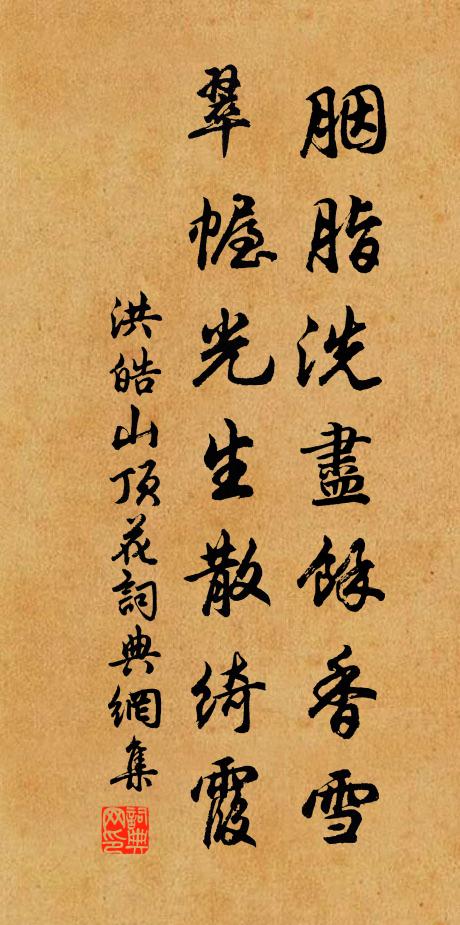 胭脂洗盡餘香雪
翠幄光生散綺霞
洪皓山頂花詞典網集
詞典網印